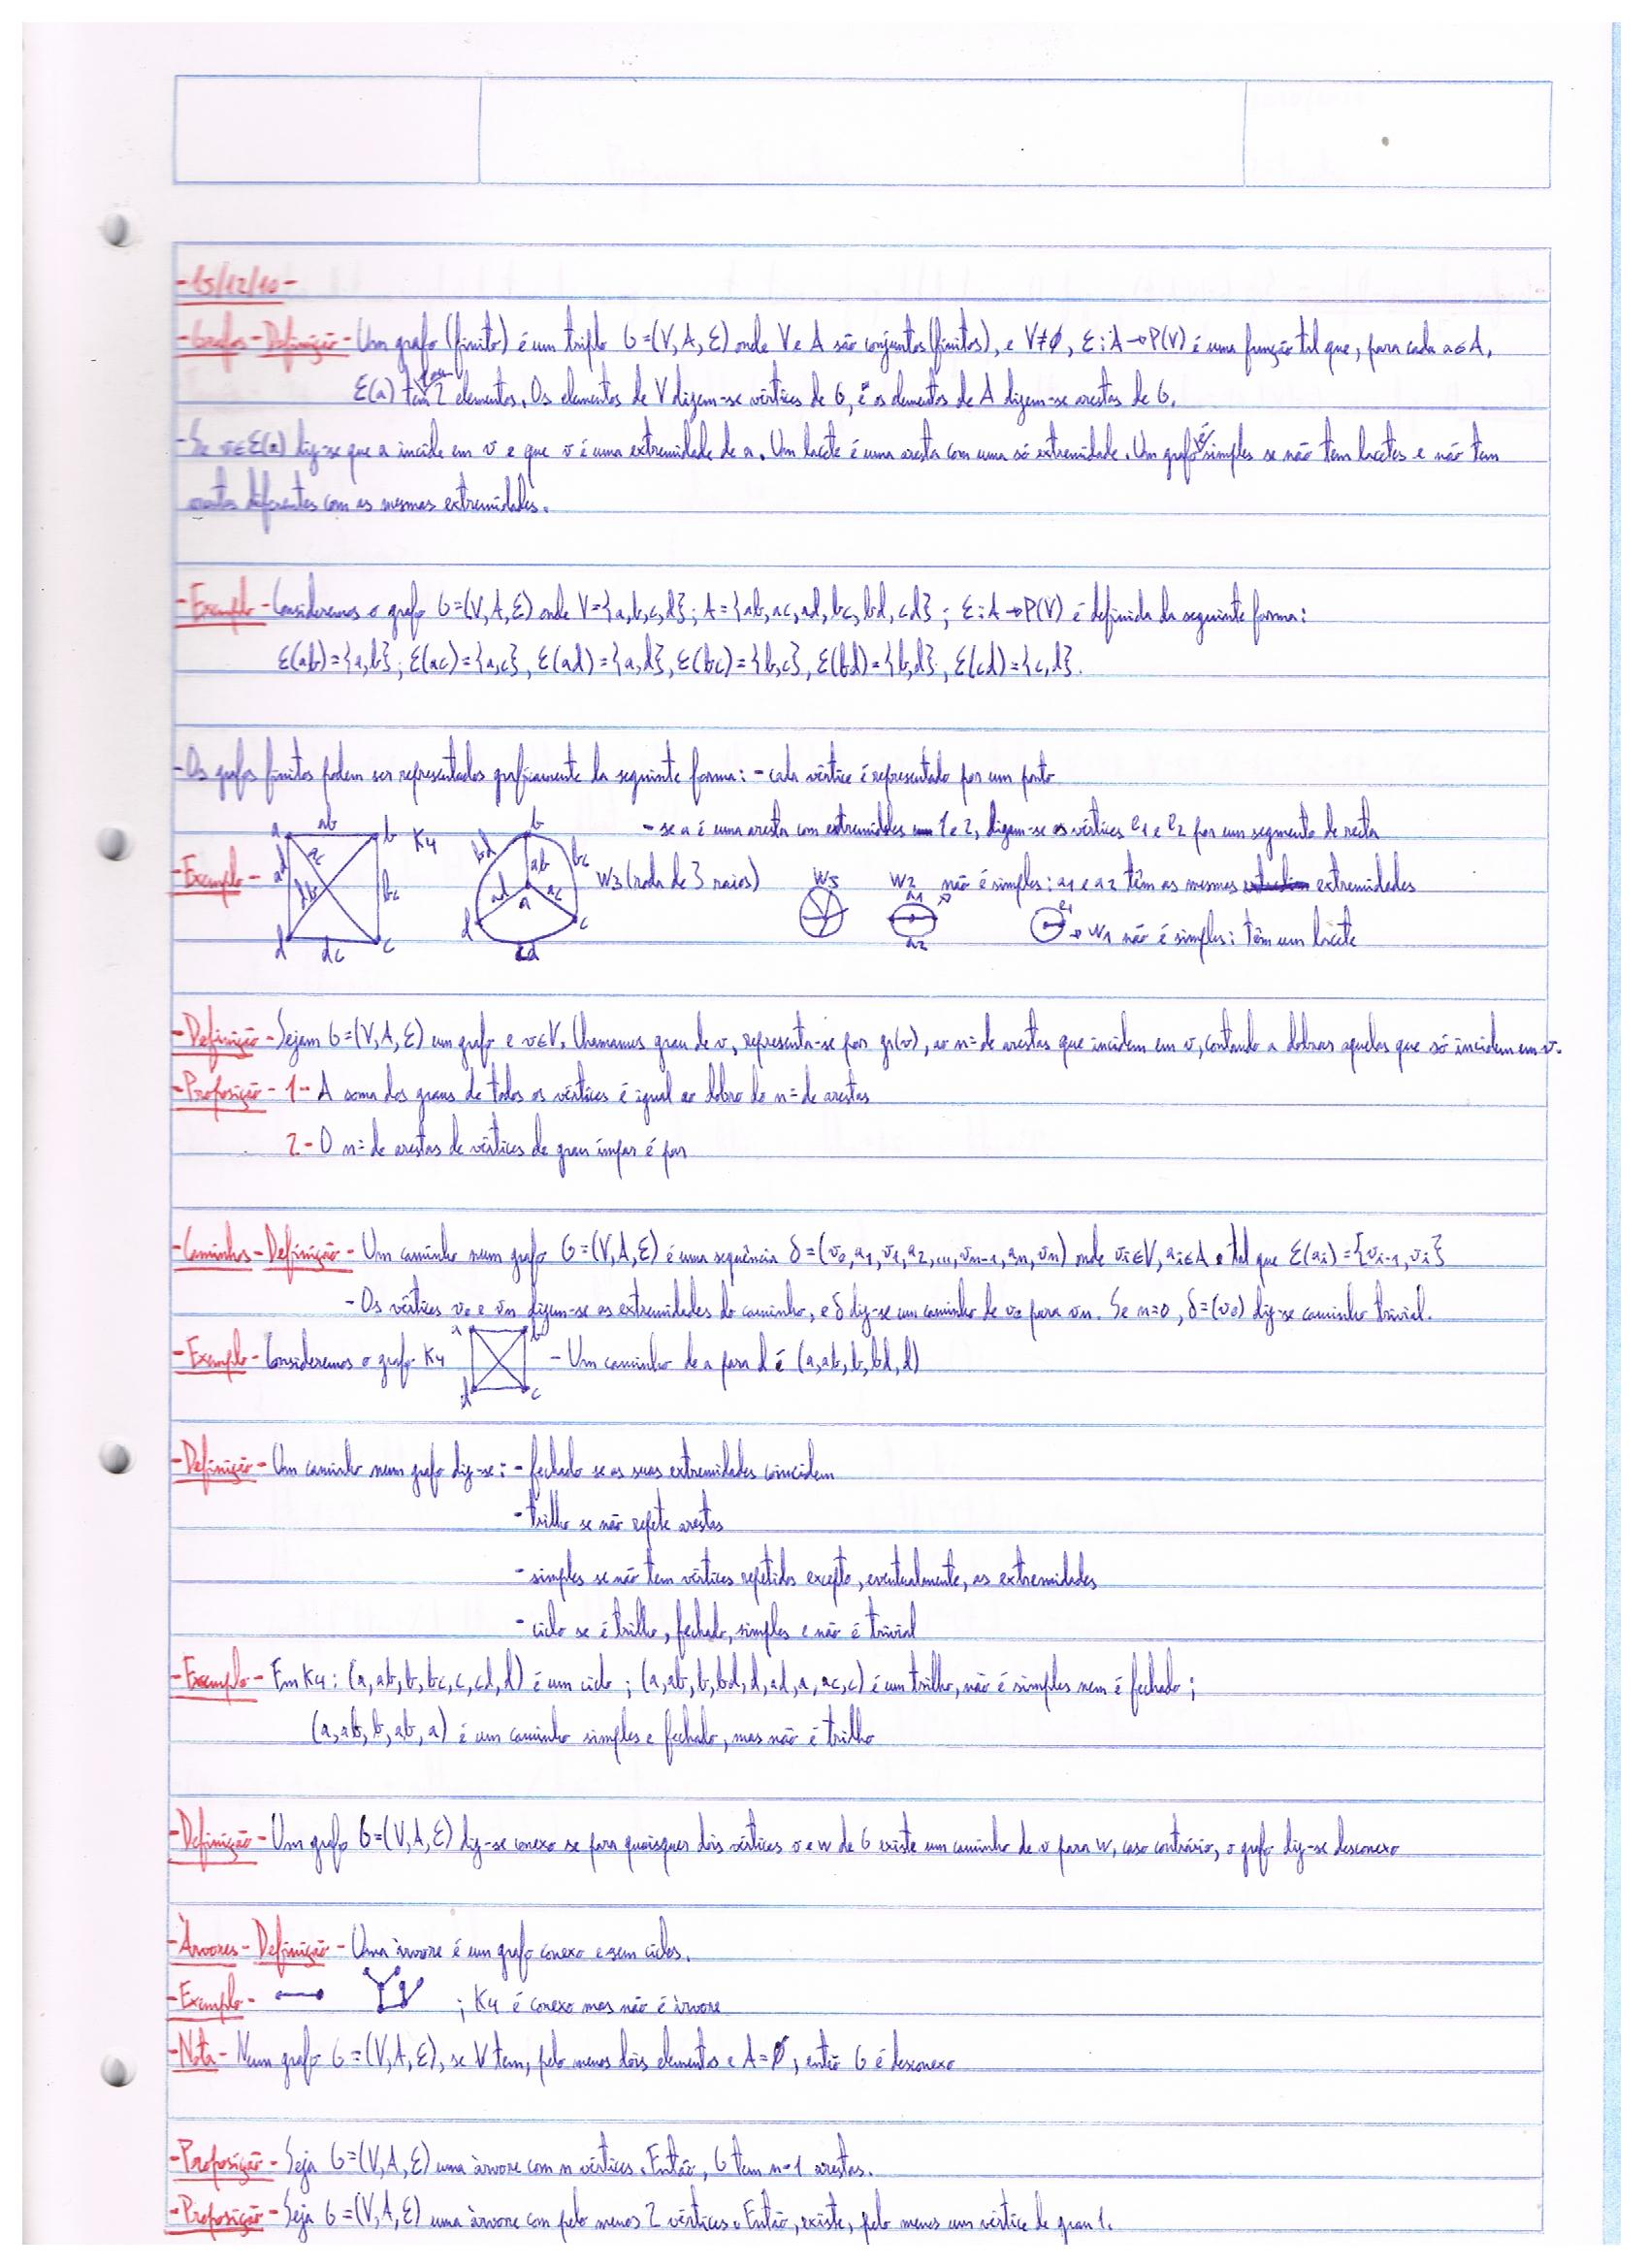 -15/12/10-
-Grafos-Definição- Um grafo (finito) é um triplo G=(V,A,Ɛ) onde V e A são conjuntos (finitos), e V≠ø, Ɛ:A→P(V) é uma função tal que, para cada a∈A,
1 ou
Ɛ(a) tem 2 elementos. Os elementos de V dizem-se vértices de G, e os elementos de A dizem-se arestas de G.
-Se v∈Ɛ(a) diz-se que a incide em v e que v é uma extremidade de a. Um lacete é uma aresta com uma só extremidade. Um grafo é simples se não tem lacetes e não tem
arestas diferentes com as mesmas extremidades.
-Exemplo- Consideremos o grafo G=(V,A,Ɛ) onde V={a,b,c,d}; A={ab,ac,ad,bc,bd,cd}; Ɛ:A→P(V) é definida da seguinte forma:
Ɛ(ab)={a,b}; Ɛ(ac)={a,c}, Ɛ(ad)={a,d}, Ɛ(bc)={b,c}, Ɛ(bd)={b,d}, Ɛ(cd)={c,d}.
-Os grafos finitos podem ser representados graficamente da seguinte forma: - cada vértice é representado por um ponto
a ab b K4 b - se a é uma aresta com extremidades 1 e 2, digam-se os vértices e1 e e2 por um segmento de recta
-Exemplo- ad ac db bc bd ab bc ad a ac W3 (roda de 3 raios) W5 W2 a1 não é simples: a1 e a2 têm as mesmas extremidades
d dc c d cd c a2 e1 → W1 não é simples: têm um lacete
-Definição- Sejam G=(V,A,Ɛ) um grafo e v∈V. Chamamos grau de v, representa-se por gr(v), ao nº de arestas que incidem em v, contando a dobrar aquelas que só incidem em v.
-Proposição- 1- A soma dos graus de todos os vértices é igual ao dobro do nº de arestas
2- O nº de arestas de vértices de grau ímpar é par
-Caminhos-Definição- Um caminho num grafo G=(V,A,Ɛ) é uma sequência δ=(v0,a1,v1,a2,...,vn-1,an,vn) onde vi∈V, ai∈A e tal que Ɛ(ai)={vi-1,vi}
- Os vértices v0 e vn dizem-se as extremidades do caminho, e δ diz-se um caminho de v0 para vn. Se n=0, δ=(v0) diz-se caminho trivial.
-Exemplo- Consideremos o grafo K4 a b d c - Um caminho de a para d é (a,ab,b,bd,d)
-Definição- Um caminho num grafo diz-se: - fechado se as suas extremidades coincidem
- trilho se não repete arestas
- simples se não tem vértices repetidos excepto, eventualmente, as extremidades
- ciclo se é trilho, fechado, simples e não é trivial
-Exemplo- Em K4: (a,ab,b,bc,c,cd,d) é um ciclo; (a,ab,b,bd,d,ad,a,ac,c) é um trilho, não é simples nem é fechado;
(a,ab,b,ab,a) é um caminho simples e fechado, mas não é trilho
-Definição- Um grafo G=(V,A,Ɛ) diz-se conexo se para quaisquer dois vértices v e w de G existe um caminho de v para w, caso contrário, o grafo diz-se desconexo
-Àrvores-Definição- Uma àrvore é um grafo conexo e sem ciclos.
-Exemplo- ; K4 é conexo mas não é àrvore
-Nota- Num grafo G=(V,A,Ɛ), se V tem, pelo menos dois elementos e A=ø, então G é desconexo
-Proposição- Seja G=(V,A,Ɛ) uma àrvore com n vértices. Então, G tem n-1 arestas.
-Proposição- Seja G=(V,A,Ɛ) uma àrvore com pelo menos 2 vértices. Então, existe, pelo menos um vértice de grau 1.